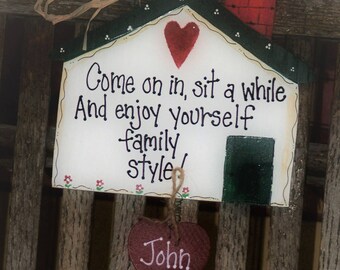 Come on in, sit a while
And enjoy yourself
family
style!
John